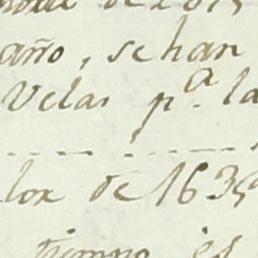 año, se han
Velas p.ª la
lox de 1635
tiempo es